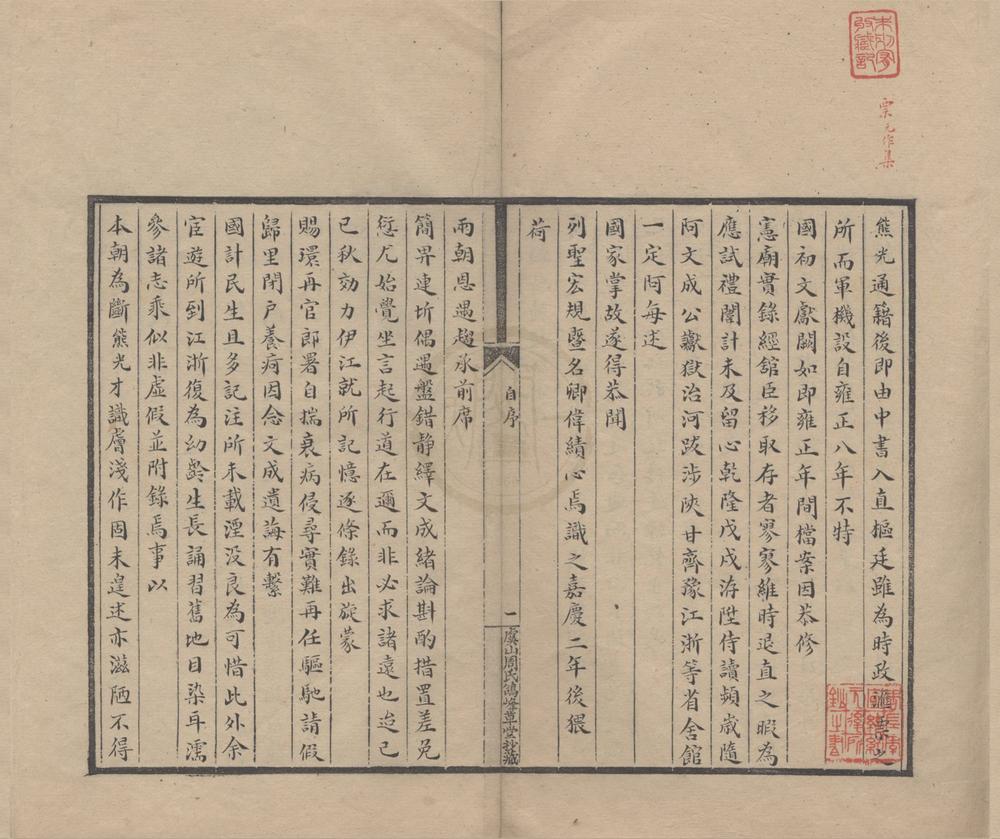 栗元作集
熊光通籍後即由中書入直樞廷雖為時政
所而軍機設自雍正八年不特
國初文獻闕如即雍正年間檔案因恭修
憲廟實錄經舘臣移取存者寥寥維時退直之暇為
應試禮闈計未及留心乾隆戊戌洊陞侍讀頻歲隨
阿文成公讞獄治河跋涉陝甘齊豫江浙等省舍館
一定阿每述
國家掌故遂得恭聞
列聖宏規暨名卿偉績心焉識之嘉慶二年後猥
荷
自序
一
虞山周氏鴿峰草堂抄藏
兩朝恩遇趨承前席
簡畀連圻偶遇盤錯静繹文成緒論斟酌措置差免
愆尤始覺坐言起行道在邇而非必求諸遠也迨己
巳秋効力伊江就所記憶逐條錄出旋蒙
賜環再官郎署自揣衰病侵尋實難再任驅馳請假
歸里閉戶養疴因念文成遺誨有繫
國計民生且多記注所未載湮没良為可惜此外余
宦遊所到江浙復為幼齡生長誦習舊地目染耳濡
參諸志乘似非虛假並附錄焉事以
本朝為斷熊光才識膚淺作固未遑述亦滋陋不得